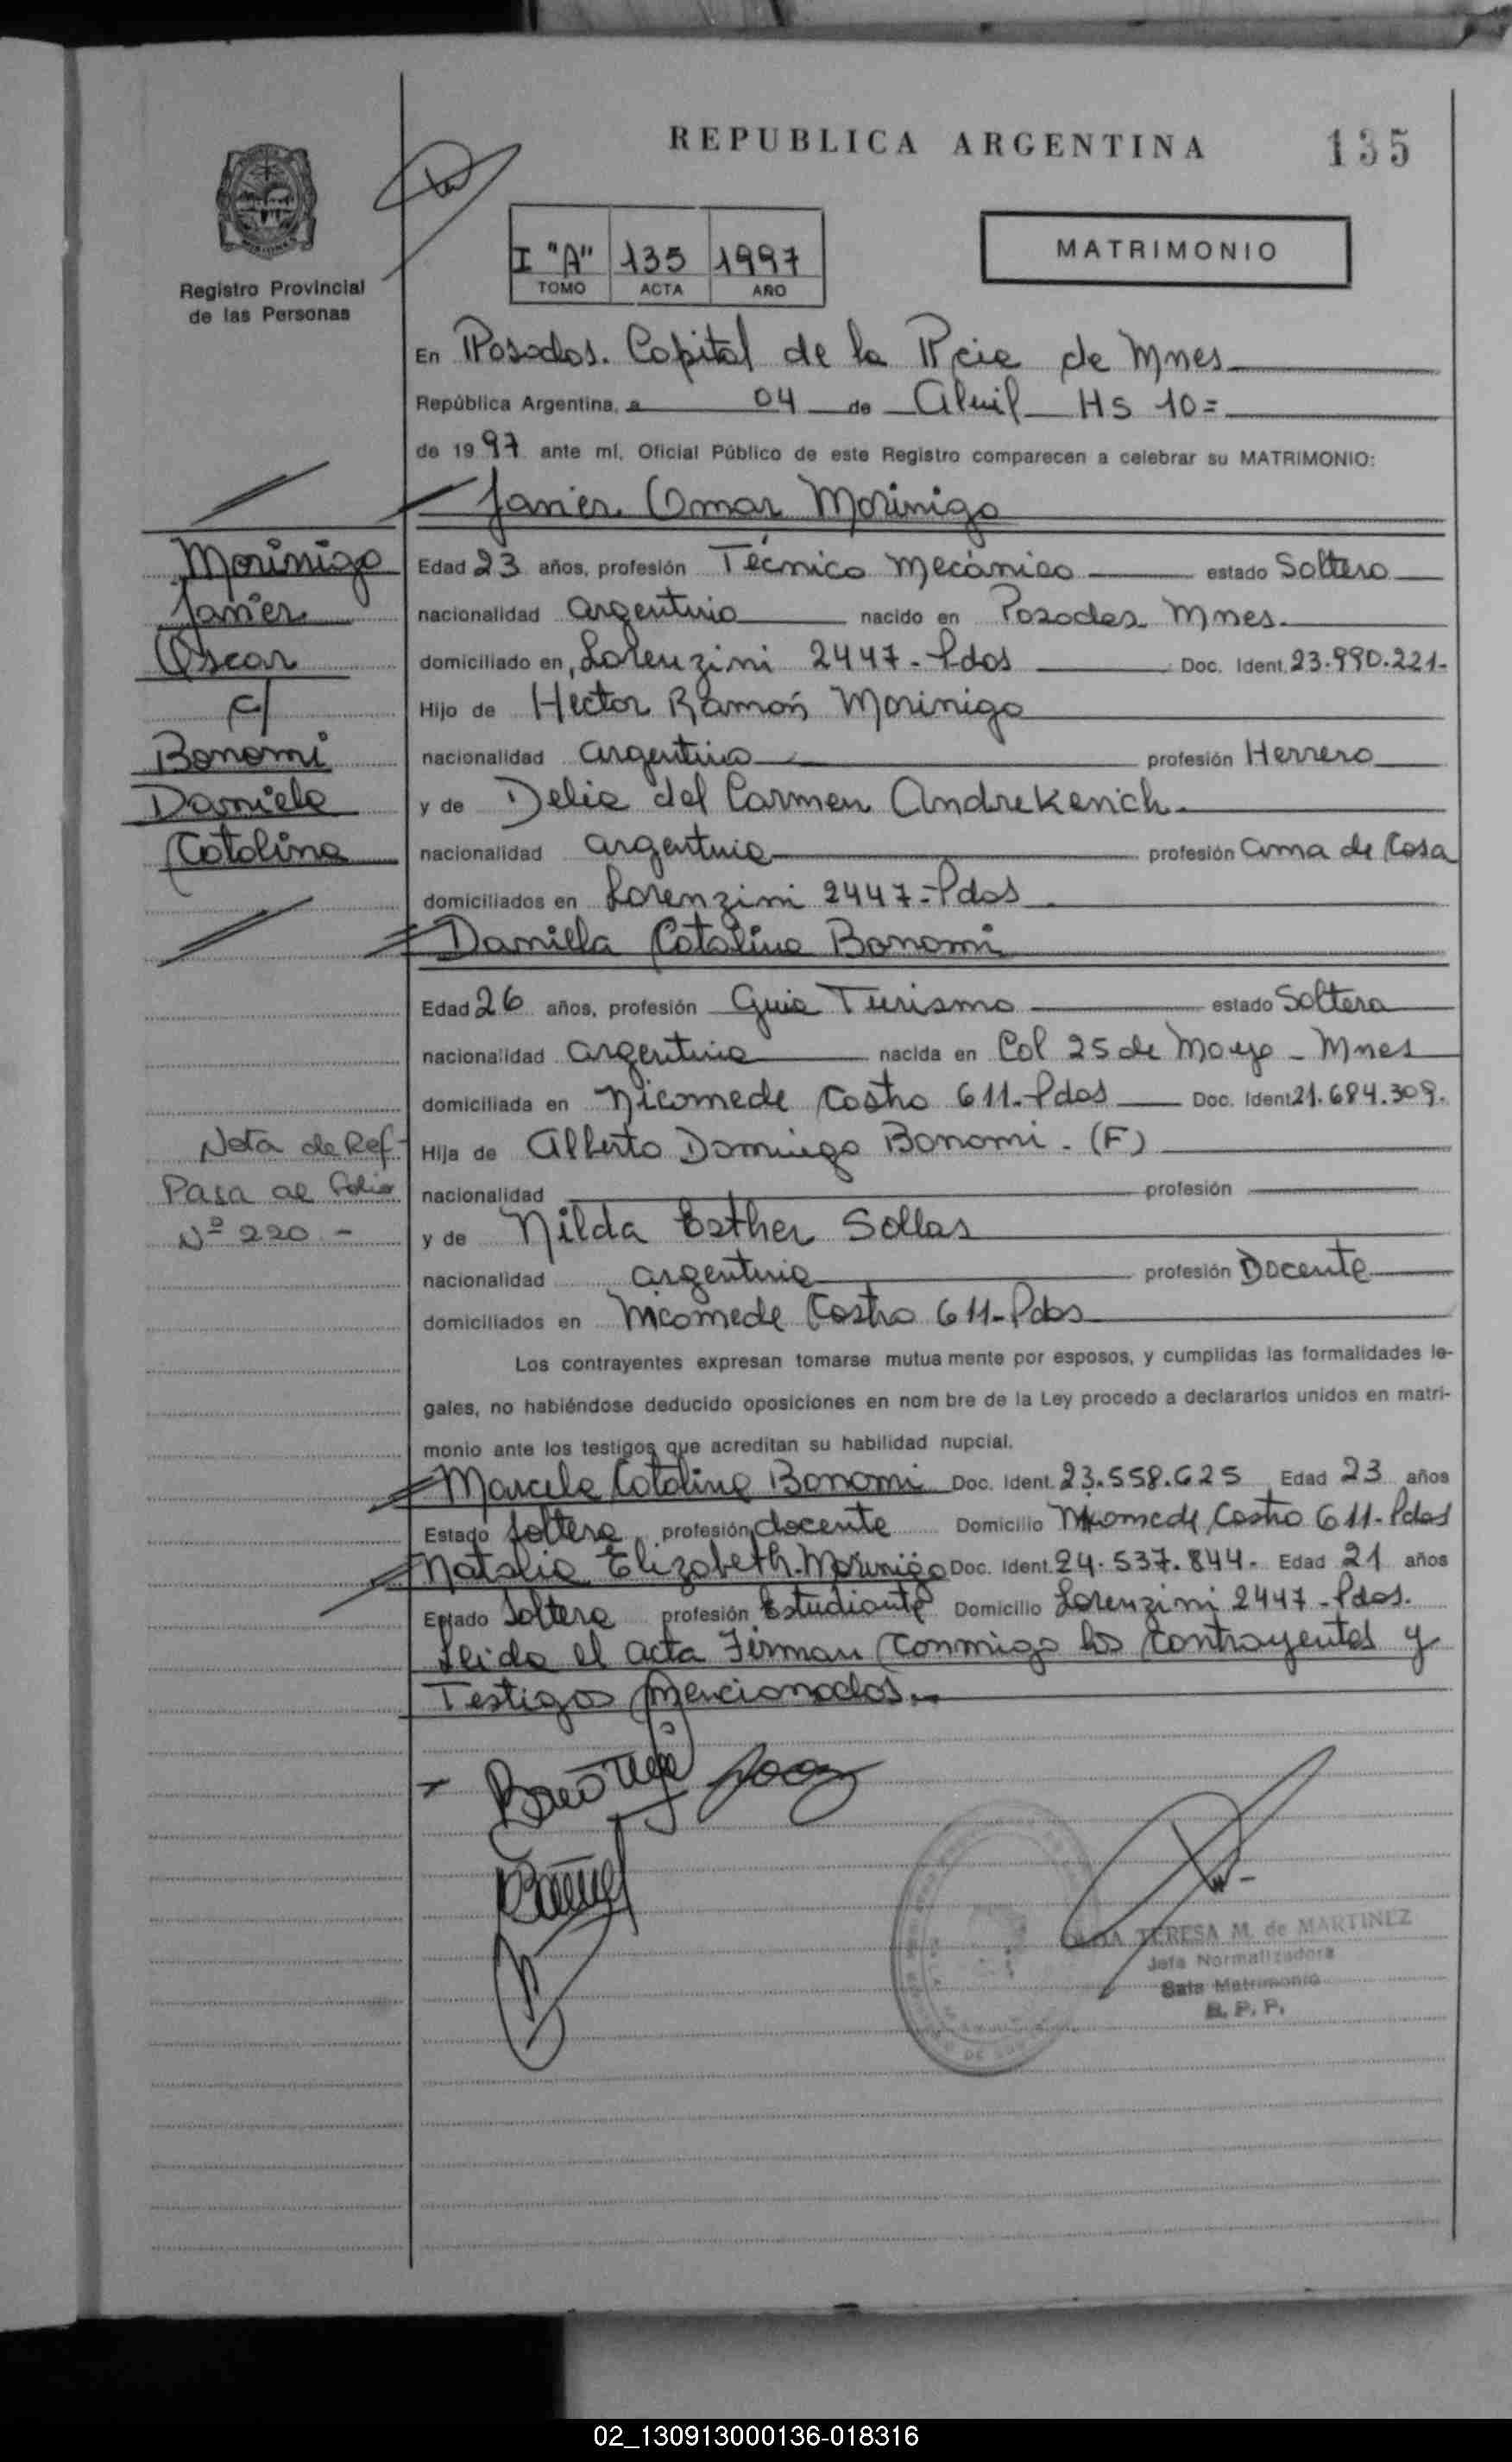 REPUBLICA ARGENTINA 135
I "A" 135 1997
TOMO ACTA AÑO
MATRIMONIO
Registro Provincial
de las Personas
En Posadas. Capital de la Pcia de Mnes
República Argentina, a 04 de Abril Hs 10=
de 1997 ante mí, Oficial Público de este Registro comparecen a celebrar su MATRIMONIO:
Javier Omar Morinigo
Morinigo
Javier
Oscar
c/
Bonomi
Daniela
Catalina
Edad 23 años, profesión Técnico Mecánico estado Soltero
nacionalidad argentino nacido en Posadas Mnes.
domiciliado en, Lorenzini 2447-Pdas Doc. Ident. 23.990.221-
Hijo de Hector Ramón Morinigo
nacionalidad argentino profesión Herrero
y de Delia del Carmen Andrekevich
nacionalidad argentina profesión ama de Casa
domiciliados en Lorenzini 2447-Pdas
Daniella Catalina Bonomi
Edad 26 años, profesión Guia Turismo estado Soltera
nacionalidad argentina nacida en Col 25 de Mayo - Mnes
domiciliada en Nicomede Castro 611.-Pdas Doc. Ident 21.684.309.
Nota de Ref-
Pasa al Folio
Nº 220.-
Hija de Alberto Domingo Bonomi - (F)
nacionalidad profesión
y de Nilda Esther Sollas
nacionalidad argentina profesión Docente
domiciliados en Nicomede Castro 611-Pdas
Los contrayentes expresan tomarse mutua mente por esposos, y cumplidas las formalidades le-
gales, no habiéndose deducido oposiciones en nom bre de la Ley procedo a declararlos unidos en matri-
monio ante los testigos que acreditan su habilidad nupcial.
Marcela Catalina Bonomi Doc. Ident. 23.558.625 Edad 23 años
Estado Soltera profesión docente Domicilio Nicomede Castro 611-Pdas
Natalia Elizabeth Morinigo Doc. Ident. 24.537.844- Edad 21 años
Estado Soltera profesión Estudiante Domicilio Lorenzini 2447-Pdas.
Leida el acta Firman Conmigo los Contrayentes y
Testigos mencionados.-
TERESA M. de MARTINEZ
Jefa Normalizadora
Sala Matrimonio
R. P. P.
02_130913000136-018316